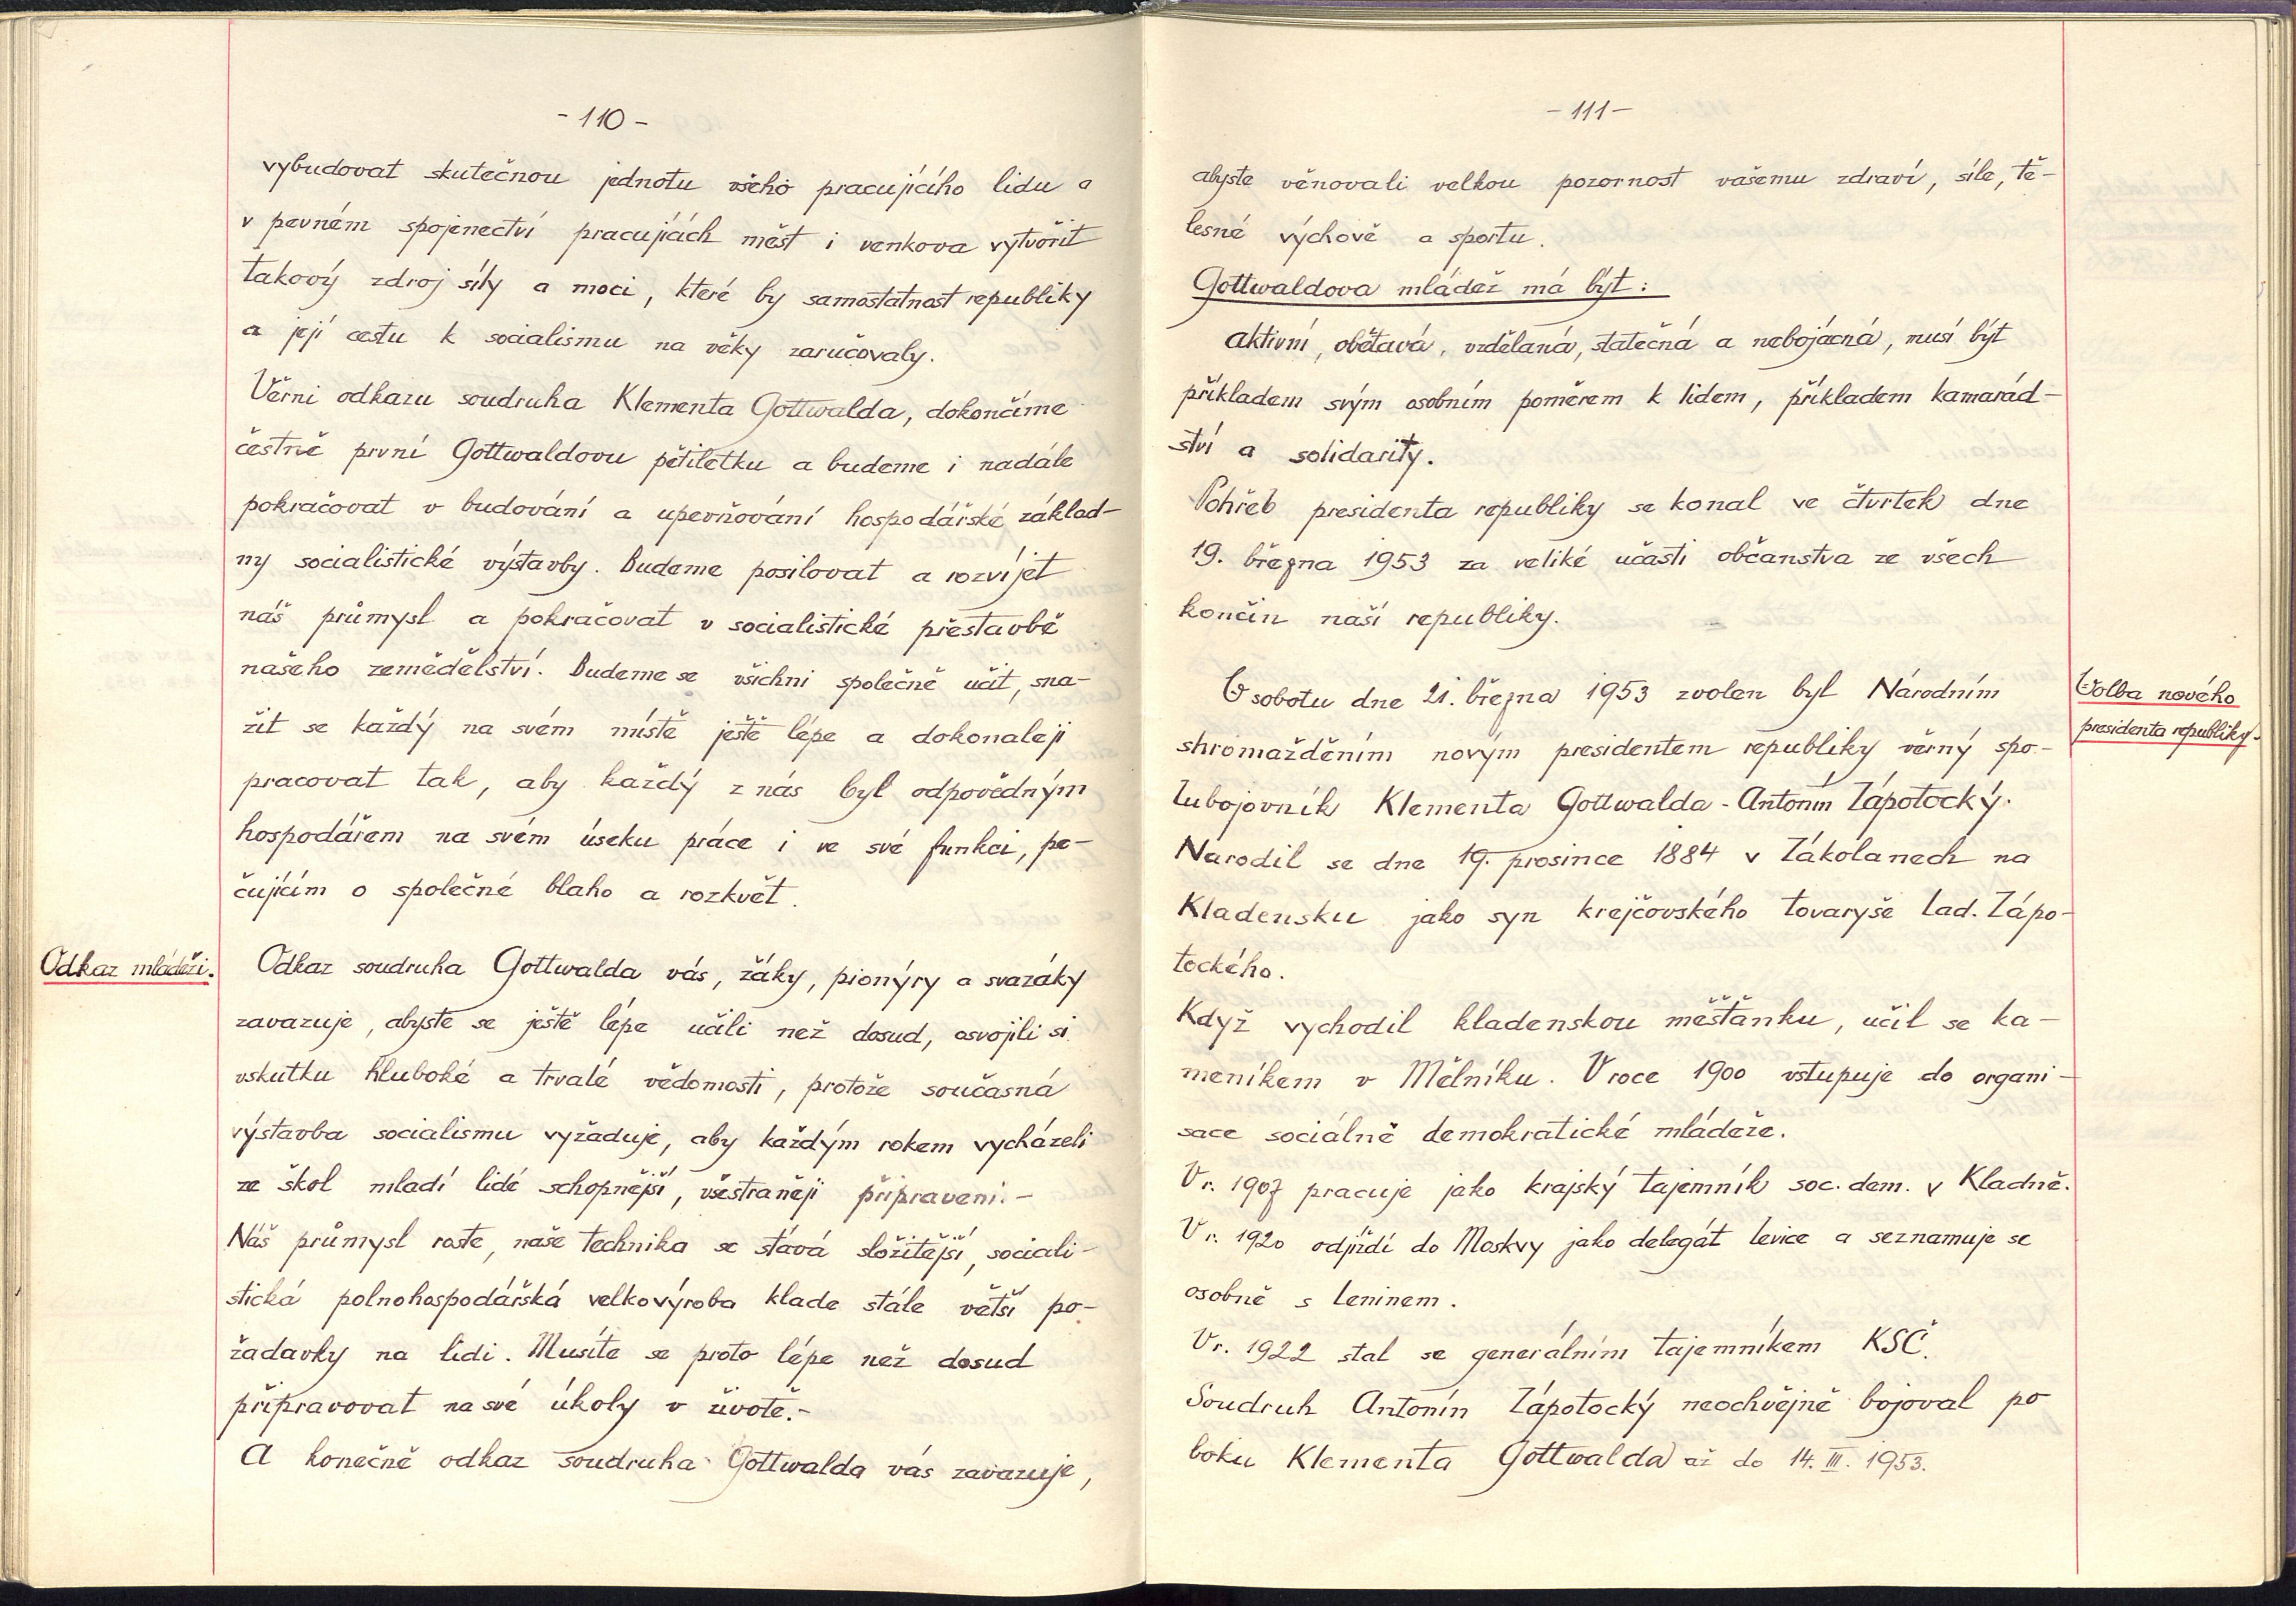 - 110 -
vybudovat skutečnou jednotu všeho pracujícího lidu a
v pevném spojenectví pracujících měst i venkova vytvořit
takový zdroj síly a moci, které by samostatnost republiky
a její cestu k socialismu na věky zaručovaly.
Věrni odkazu soudruha Klementa Gottwalda, dokončíme
čestně první Gottwaldovu pětiletku a budeme i nadále
pokračovat v budování a upevňování hospodářské základ-
ny socialistické výstavby. Budeme posilovat a rozvíjet
náš průmysl a pokračovat v socialistické přestavbě
našeho zemědělství. Budeme se všichni společně učit, sna-
žit se každý na svém místě ještě lépe a dokonaleji
pracovat tak, aby každý z nás byl odpovědným
hospodářem na svém úseku práce i ve své funkci, pe-
čujícím o společné blaho a rozkvět.
Odkaz mládeži.
Odkaz soudruha Gottwalda vás, žáky, pionýry a svazáky
zavazuje, abyste se ještě lépe učili než dosud, osvojili si
vskutku hluboké a trvalé vědomosti, protože současná
výstavba socialismu vyžaduje, aby každým rokem vycházeli
ze škol mladí lidé schopnější, všestraněji připraveni.-
Náš průmysl roste, naše technika se stává složitější, sociali-
stická polnohospodářská velkovýroba klade stále větší po-
žadavky na lidi. Musíte se proto lépe než dosud
připravovat na své úkoly v životě.-
A konečně odkaz soudruha Gottwalda vás zavazuje,
- 111 -
abyste věnovali velkou pozornost vašemu zdraví, síle, tě-
lesné výchově a sportu.
Gottwaldova mládež má být:
aktivní, obětavá, vzdělaná, statečná a nebojácná, musí být
příkladem svým osobním poměrem k lidem, příkladem kamarád-
ství a solidarity.
Pohřeb presidenta republiky se konal ve čtvrtek dne
19. března 1953 za veliké učasti občanstva ze všech
končin naší republiky.
V sobotu dne 21. března 1953 zvolen byl Národním
shromažděním novým presidentem republiky věrný spo-
lubojovník Klementa Gottwalda - Antonín Zápotocký.
Narodil se dne 19. prosince 1884 v Zákolanech na
Kladensku jako syn krejčovského tovaryše Lad. Zápo-
tockého.
Když vychodil kladenskou měšťanku, učil se ka-
meníkem v Mělníku. V roce 1900 vstupuje do organi-
sace sociálně demokratické mládeže.
V r. 1907 pracuje jako krajský tajemník soc. dem. v Kladně.
V r. 1920 odjíždí do Moskvy jako delegát levice a seznamuje se
osobně s Leninem.
V r. 1922 stal se generálním tajemníkem KSČ.
Soudruh Antonín Zápotocký neochvějně bojoval po
boku Klementa Gottwalda až do 14. III. 1953.
Volba nového
presidenta republiky.